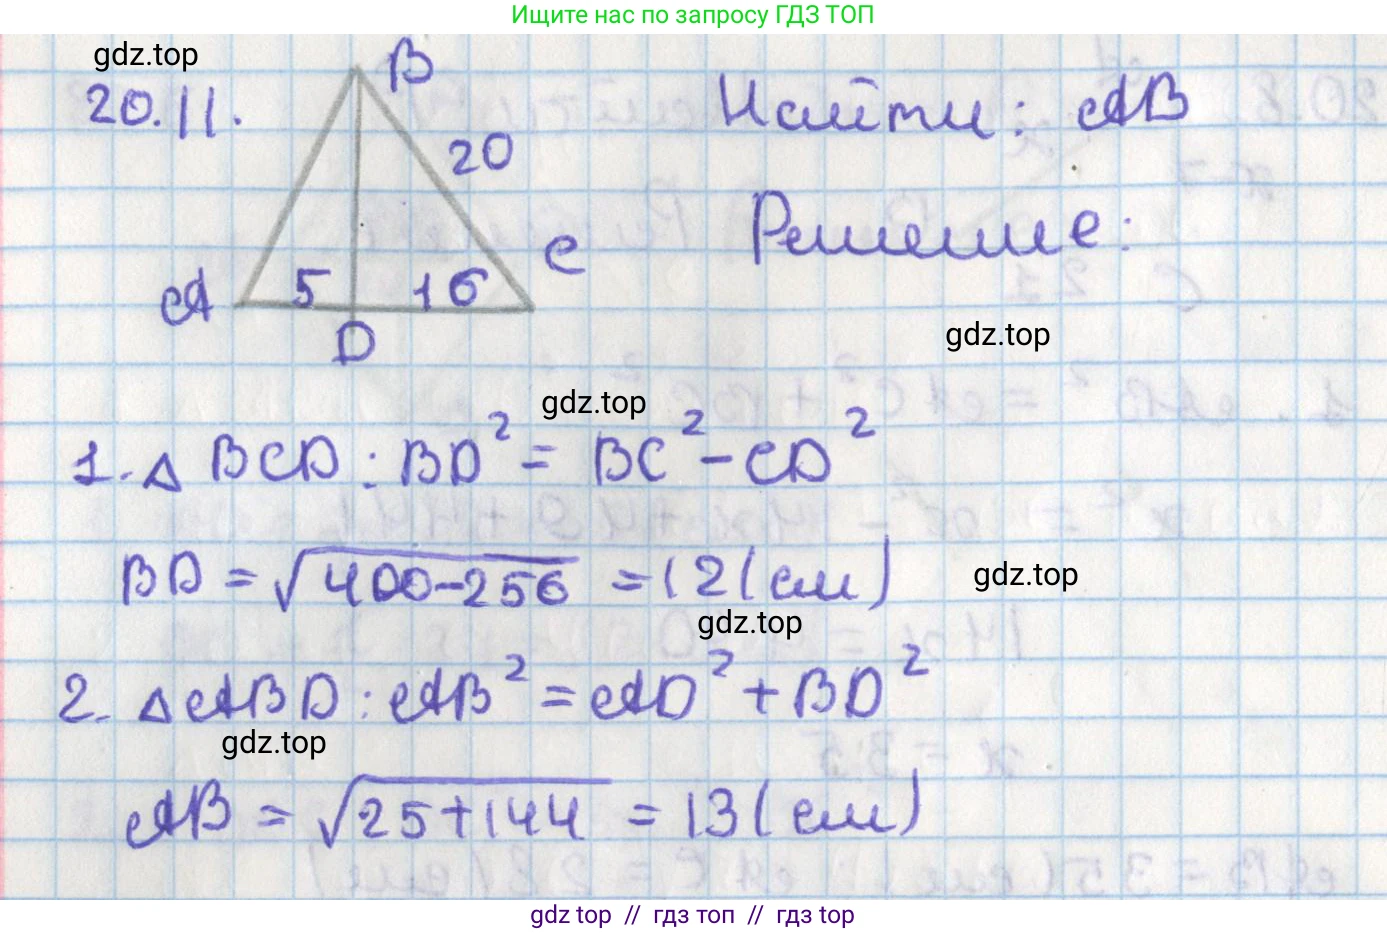 Ищите нас по запросу ГДЗ ТОП
gdz.top
20.11.
B
20
Найти: AB
Решение:
A 5 16 C
D
gdz.top
gdz.top
1. △ BCD : BD² = BC² - CD²
BD = √400-256 = 12 (см)
gdz.top
gdz.top
2. △ ABD : AB² = AD² + BD²
gdz.top
AB = √25+144 = 13 (см)
gdz top // гдз топ // гдз top